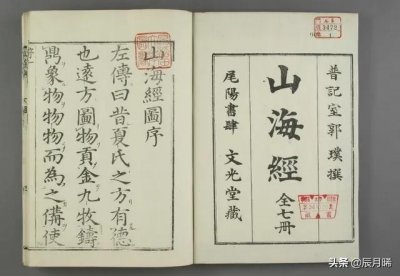 晉記室郭璞撰
山海經
全七冊
尾陽書肆 文光堂藏
3478
山海經圖序
左傳曰昔夏氏之方有德
也遠方圖物貢金九牧鑄
鼎象物物物而為之備使
头条 @辰月晞